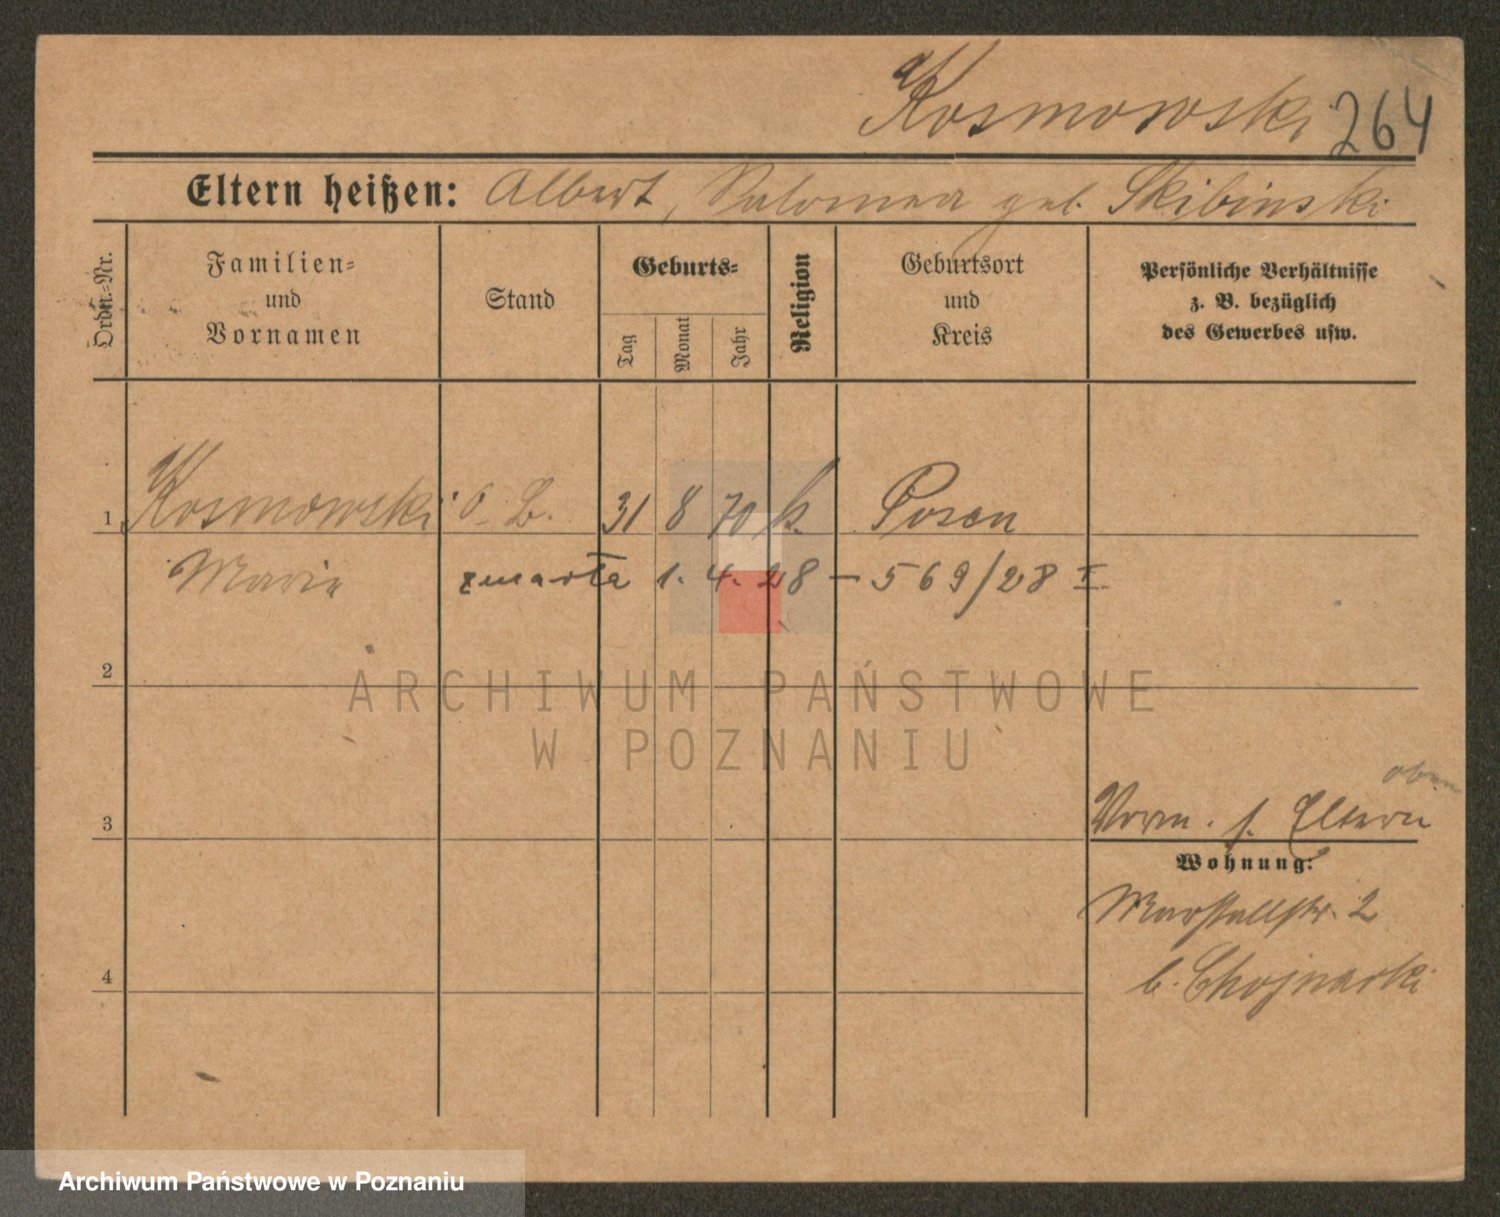 Kosmowski 264
Eltern heißen: Albert, Salomea geb. Skibinski
Ordn.-Nr.
Familien- und Vornamen
Stand
Geburts-
Tag
Monat
Jahr
Religion
Geburtsort und Kreis
Persönliche Verhältnisse z. B. bezüglich des Gewerbes usw.
1 Kosmowski o. B. 31 8 70 k. Posen
Marie zmarła 1. 4. 28 – 569/28 I
2
ARCHIWUM PAŃSTWOWE
W POZNANIU
oben
3 Vorm. s. Eltern
Wohnung:
Marstallstr. 2
4 b. Chojnacki
Archiwum Państwowe w Poznaniu